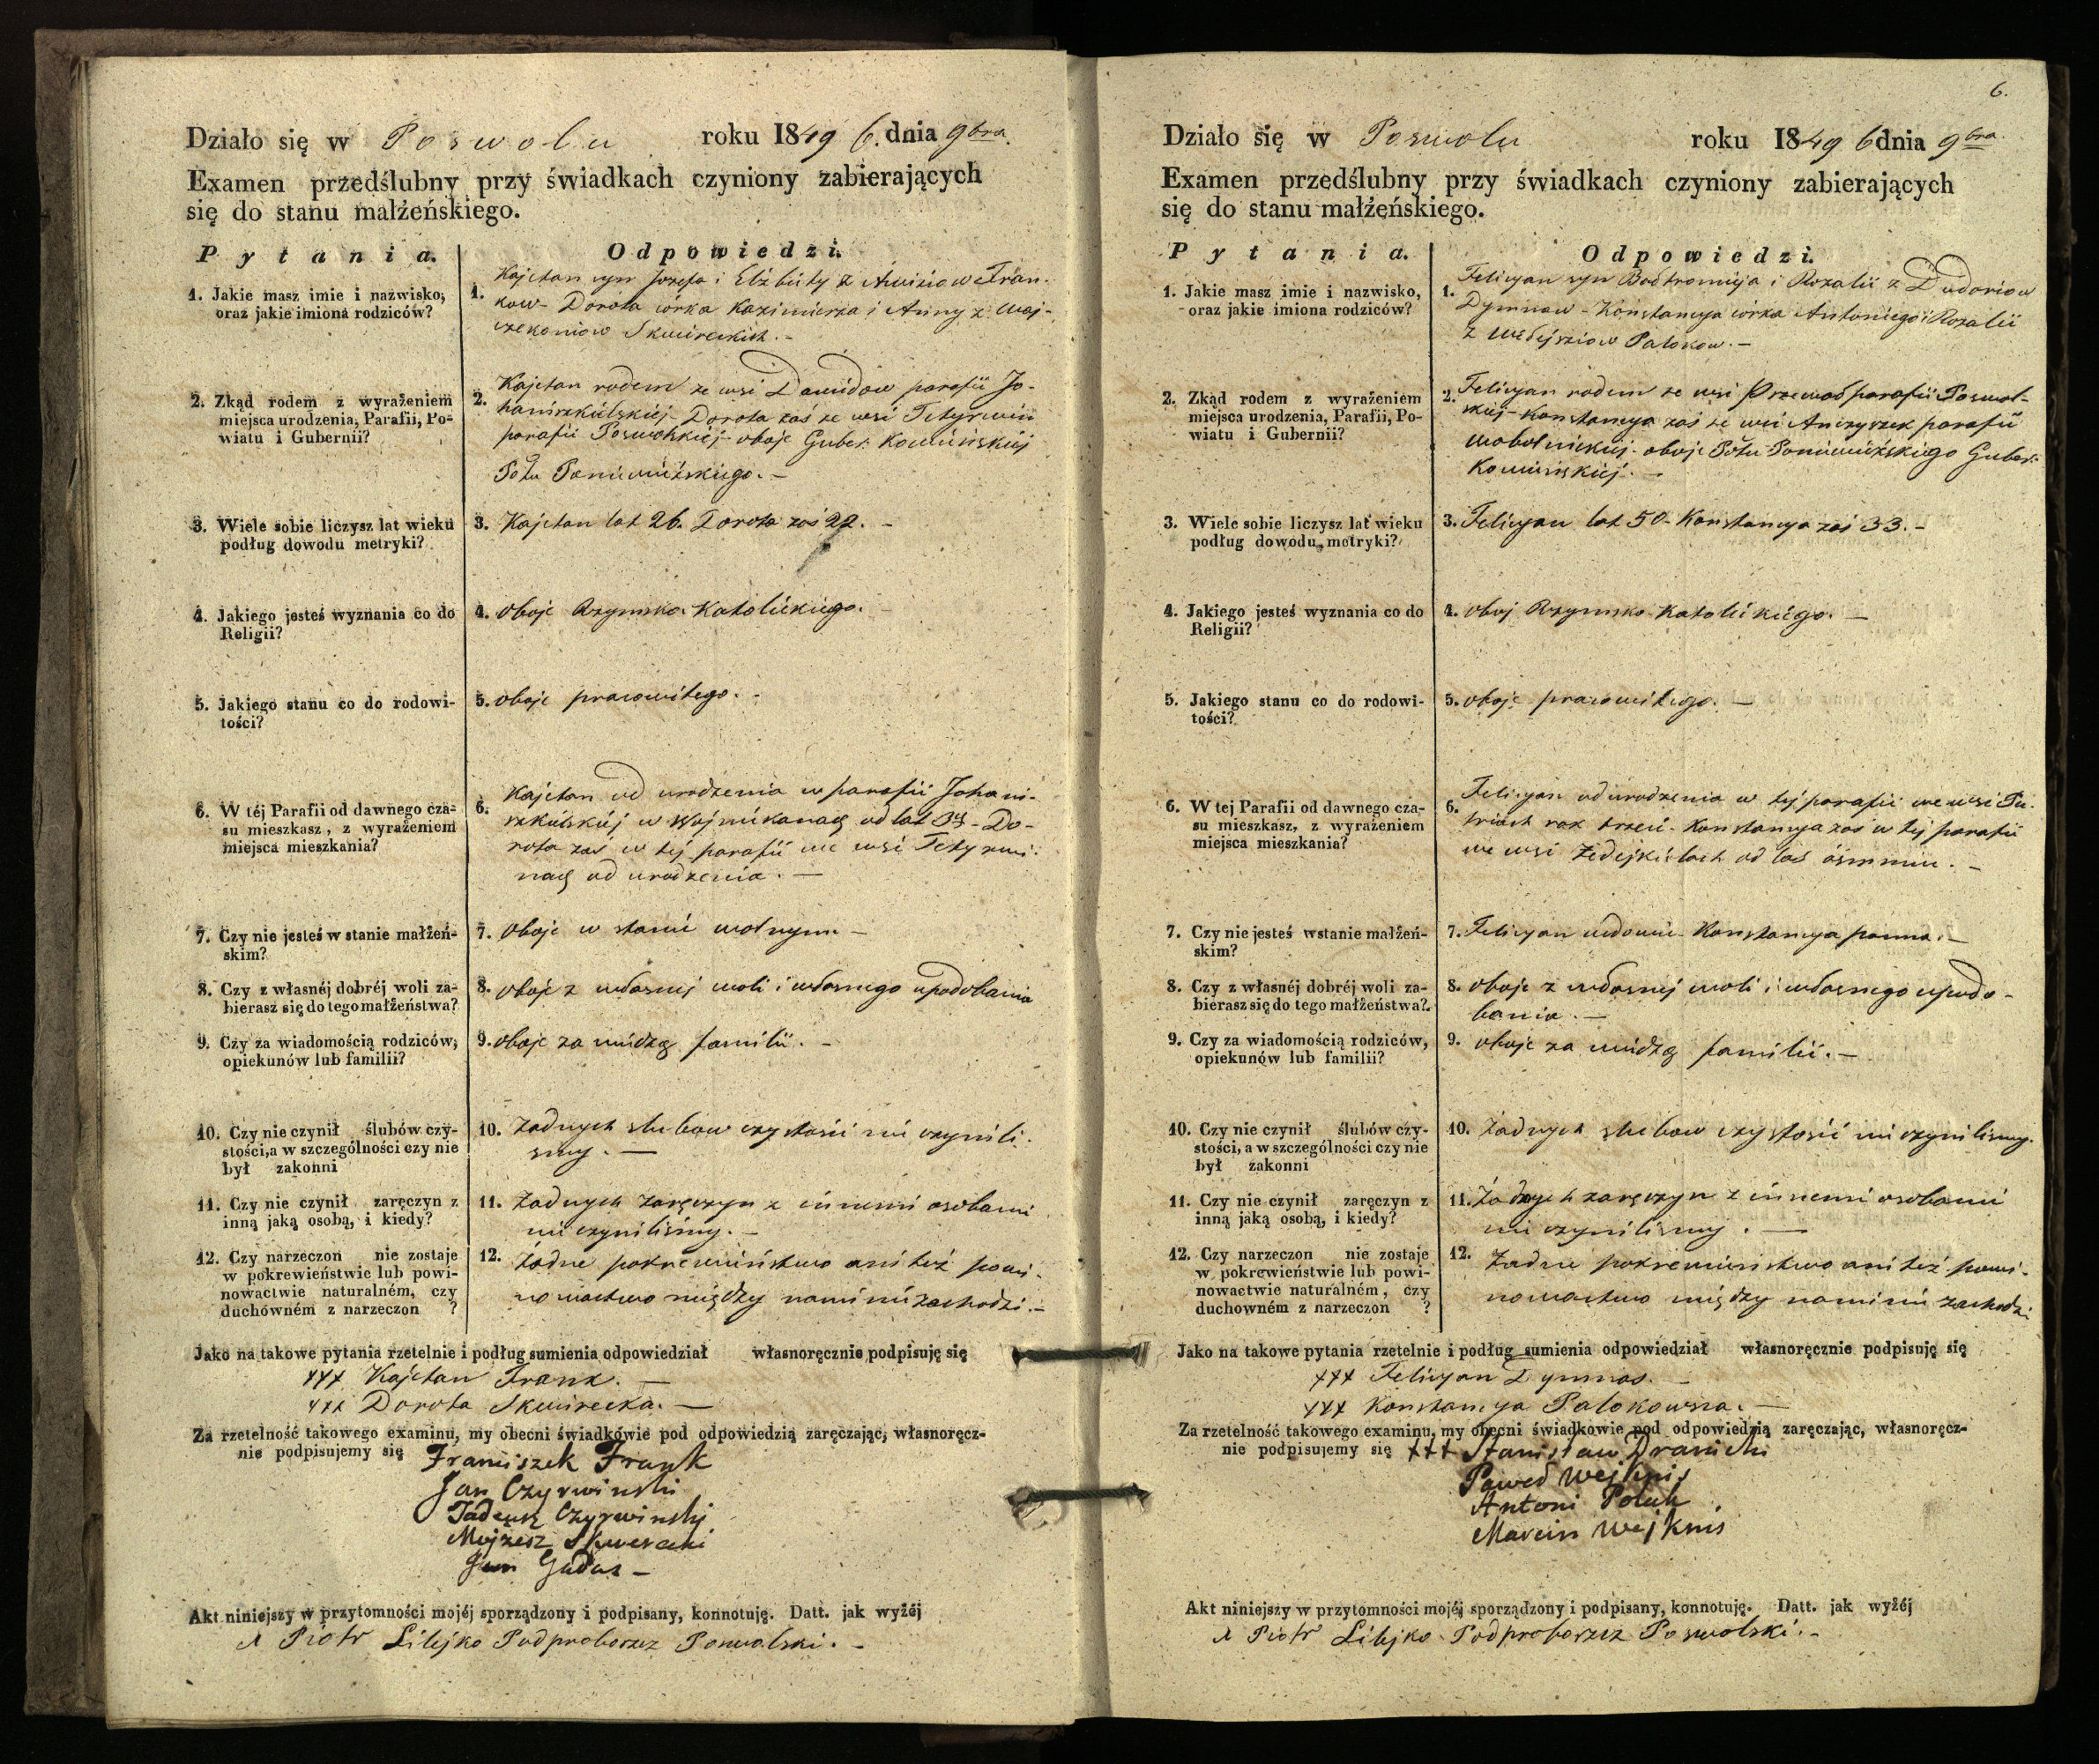 Działo się w Poswolu roku 1849 6. dnia 9bra.
Examen przedślubny przy świadkach czyniony zabierających
się do stanu małżeńskiego.
Pytania.
Odpowiedzi.
1. Jakie masz imie i nazwisko,
oraz jakie imiona rodziców?
1. Kajetan syn Jozefa i Elżbiéty z Awiziow Fran-
kow - Dorota córka Kazimierza i Anny z Waj-
czekoniow Skwireckich. -
2. Zkąd rodem z wyrażeniem
miejsca urodzenia, Parafii, Po-
wiatu i Gubernii?
2. Kajetan rodem ze wsi Dawidow parafii Jo-
haniszkielskiéj - Dorota zaś ze wsi Tetyrwin
parafii Poswolskiéj - oboje Guber: Kowieńskiéj
Połu Poniewiéżskiego. -
3. Wiele sobie liczysz lat wieku
podług dowodu metryki?
3. Kajetan lat 26. Dorota zaś 22. -
4. Jakiego jesteś wyznania co do
Religii?
4. oboje Rzymsko-Katolickiego. -
5. Jakiego stanu co do rodowi-
tości?
5. oboje pracowitego. -
6. W téj Parafii od dawnego cza-
su mieszkasz, z wyrażeniem
miejsca mieszkania?
6. Kajetan od urodzenia w parafii Johani-
szkielskiéj w Wojnikanach od lat - Do-
rota zaś w téj parafii we wsi Tetyrwi-
nach od urodzenia. -
7. Czy nie jesteś w stanie małżeń-
skim?
7. oboje w stanie wolnym -
8. Czy z własnéj dobréj woli za-
bierasz się do tego małżeństwa?
8. oboje z własnéj woli i własnego upodobania
9. Czy za wiadomością rodziców,
opiekunów lub familii?
9. oboje za wiedzą familii. -
10. Czy nie czynił ślubów czy-
stości, a w szczególności czy nie
był zakonni
10. Żadnych slubow czystości nie czynili-
smy. -
11. Czy nie czynił zaręczyn z
inną jaką osobą, i kiedy?
11. Żadnych zaręczyn z innemi osobami
nie czynilismy. -
12. Czy narzeczon nie zostaje
w pokrewieństwie lub powi-
nowactwie naturalném, czy
duchowném z narzeczon ?
12. Żadne pokrewieństwo ani też powi-
nowactwo między nami nie zachodzi. -
Jako na takowe pytania rzetelnie i podług sumienia odpowiedział własnoręcznie podpisuję się
xxx Kajetan Frank. -
xxx Dorota Skwirecka. -
Za rzetelność takowego examinu, my obecni świadkowie pod odpowiedzią zaręczając, własnoręcz-
nie podpisujemy się Franciszek Frank
Jan Czyrwinski
Tadeusz Czyrwinski
Mojżesz Skwerecki
Jan Gudas -
Akt niniejszy w przytomności mojéj sporządzony i podpisany, konnotuję. Datt. jak wyżéj
X Piotr Lilejko Podproboszcz Poswolski. -
6.
Działo się w Poswolu roku 1849 6 dnia 9bra.
Examen przedślubny przy świadkach czyniony zabierających
się do stanu małżeńskiego.
Pytania.
Odpowiedzi.
1. Jakie masz imie i nazwisko,
oraz jakie imiona rodziców?
1. Felicyan syn Bartłomieja i Rozalii z Dudoriow
Dymnow - Konstancya córka Antoniego i Rozalii
z Wedejsziow Palokow. -
2. Zkąd rodem z wyrażeniem
miejsca urodzenia, Parafii, Po-
wiatu i Gubernii?
2. Felicyan rodem ze wsi parafii Poswol-
skiéj - Konstancya zaś ze wsi Anczyszek parafii
Wobolnickiéj - oboje Połu Poniewiéżskiego Guber:
Kowieńskiéj. -
3. Wiele sobie liczysz lat wieku
podług dowodu metryki?
3. Felicyan lat 50 - Konstancya zaś 33. -
4. Jakiego jesteś wyznania co do
Religii?
4. oboj Rzymsko-Katolickiégo. -
5. Jakiego stanu co do rodowi-
tości?
5. oboje pracowitego. -
6. W tej Parafii od dawnego cza-
su mieszkasz, z wyrażeniem
miejsca mieszkania?
6. Felicyan od urodzenia w téj parafii we wsi
rok trzeci - Konstancya zaś w téj parafii
we wsi Żedejkielach od lat ósmniu. -
7. Czy nie jesteś wstanie małżeń-
skim?
7. Felicyan wdowiec - Konstancya panna. -
8. Czy z własnéj dobréj woli za-
bierasz się do tego małżeństwa?
8. oboje z własnéj woli i własnego upodo-
bania. -
9. Czy za wiadomością rodziców,
opiekunów lub familii?
9. oboje za wiedzą familii. -
10. Czy nie czynił ślubów czy-
stości, a w szczególności czy nie
był zakonni
10. Żadnych slubow czystości nie czynilismy.
11. Czy nie czynił zaręczyn z
inną jaką osobą, i kiedy?
11. Żadnych zaręczyn z innemi osobami
nie czynilismy. -
12. Czy narzeczon nie zostaje
w pokrewieństwie lub powi-
nowactwie naturalném, czy
duchowném z narzeczon ?
12. Żadne pokrewieństwo ani też powi-
nowactwo między nami nie zachodzi
Jako na takowe pytania rzetelnie i podług sumienia odpowiedział własnoręcznie podpisuję się
xxx Felicyan Dymnos. -
xxx Konstancya Palokowna. -
Za rzetelność takowego examinu, my obecni świadkowie pod odpowiedzią zaręczając, własnoręcz-
nie podpisujemy się xxx Stanisław
Paweł Wejknis
Antoni Poluk
Marcin Wejknis
Akt niniejszy w przytomności mojéj sporządzony i podpisany, konnotuję. Datt. jak wyżéj
X Piotr Lilejko Podproboszcz Poswolski. -